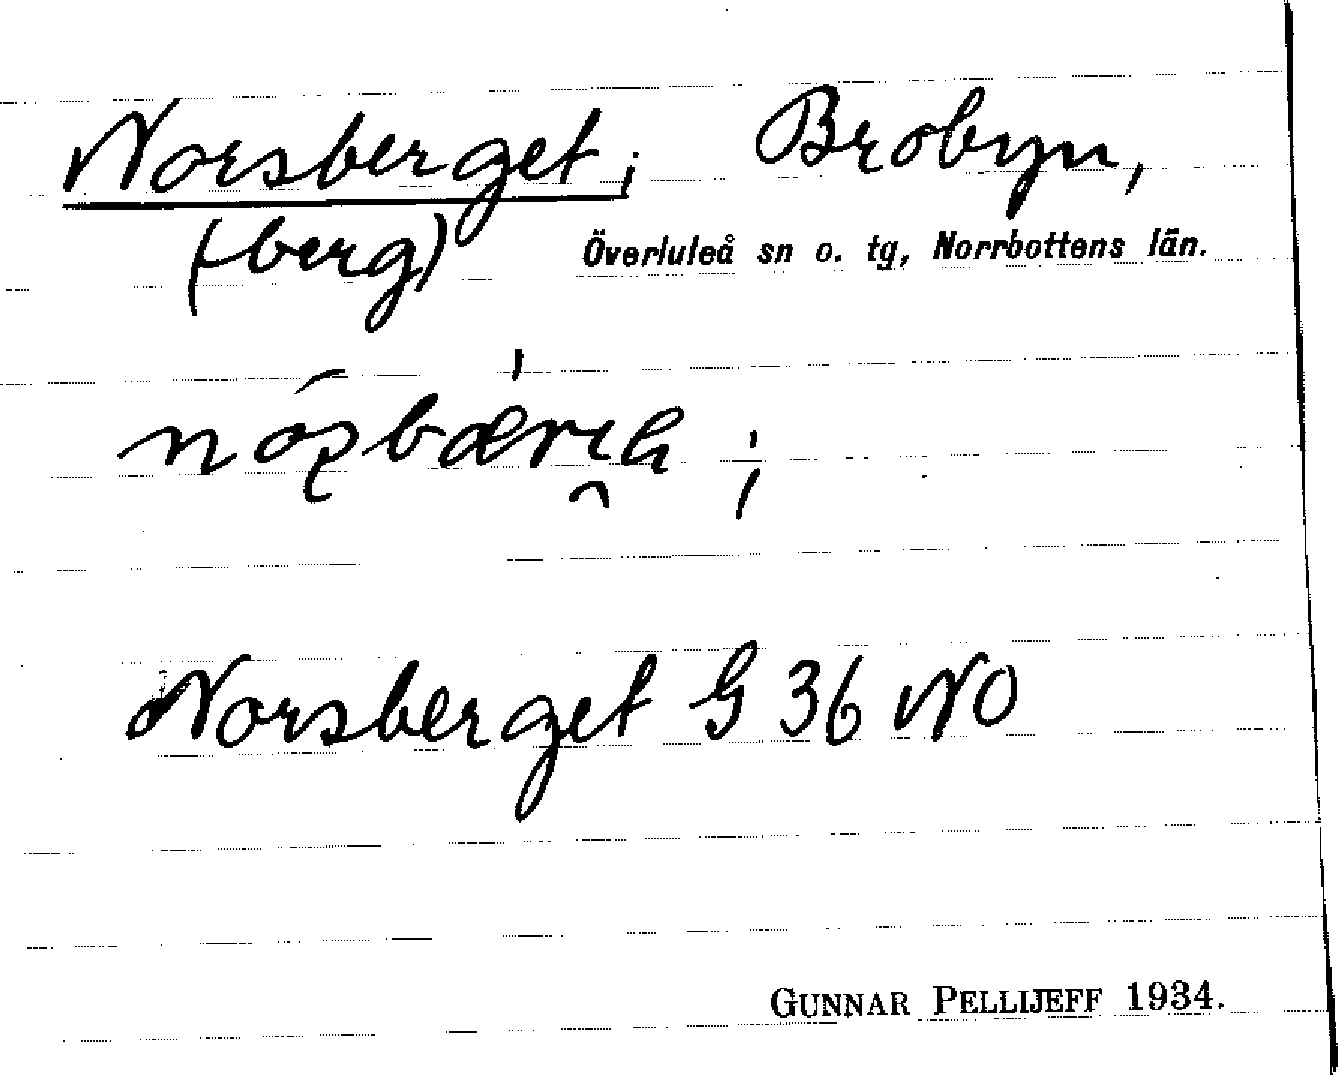 Norsberget, Brobyn,
(-berg) Överluleå sn o. tg, Norrbottens län.
Norsberget G 36 NO
GUNNAR PELLIJEFF 1934.